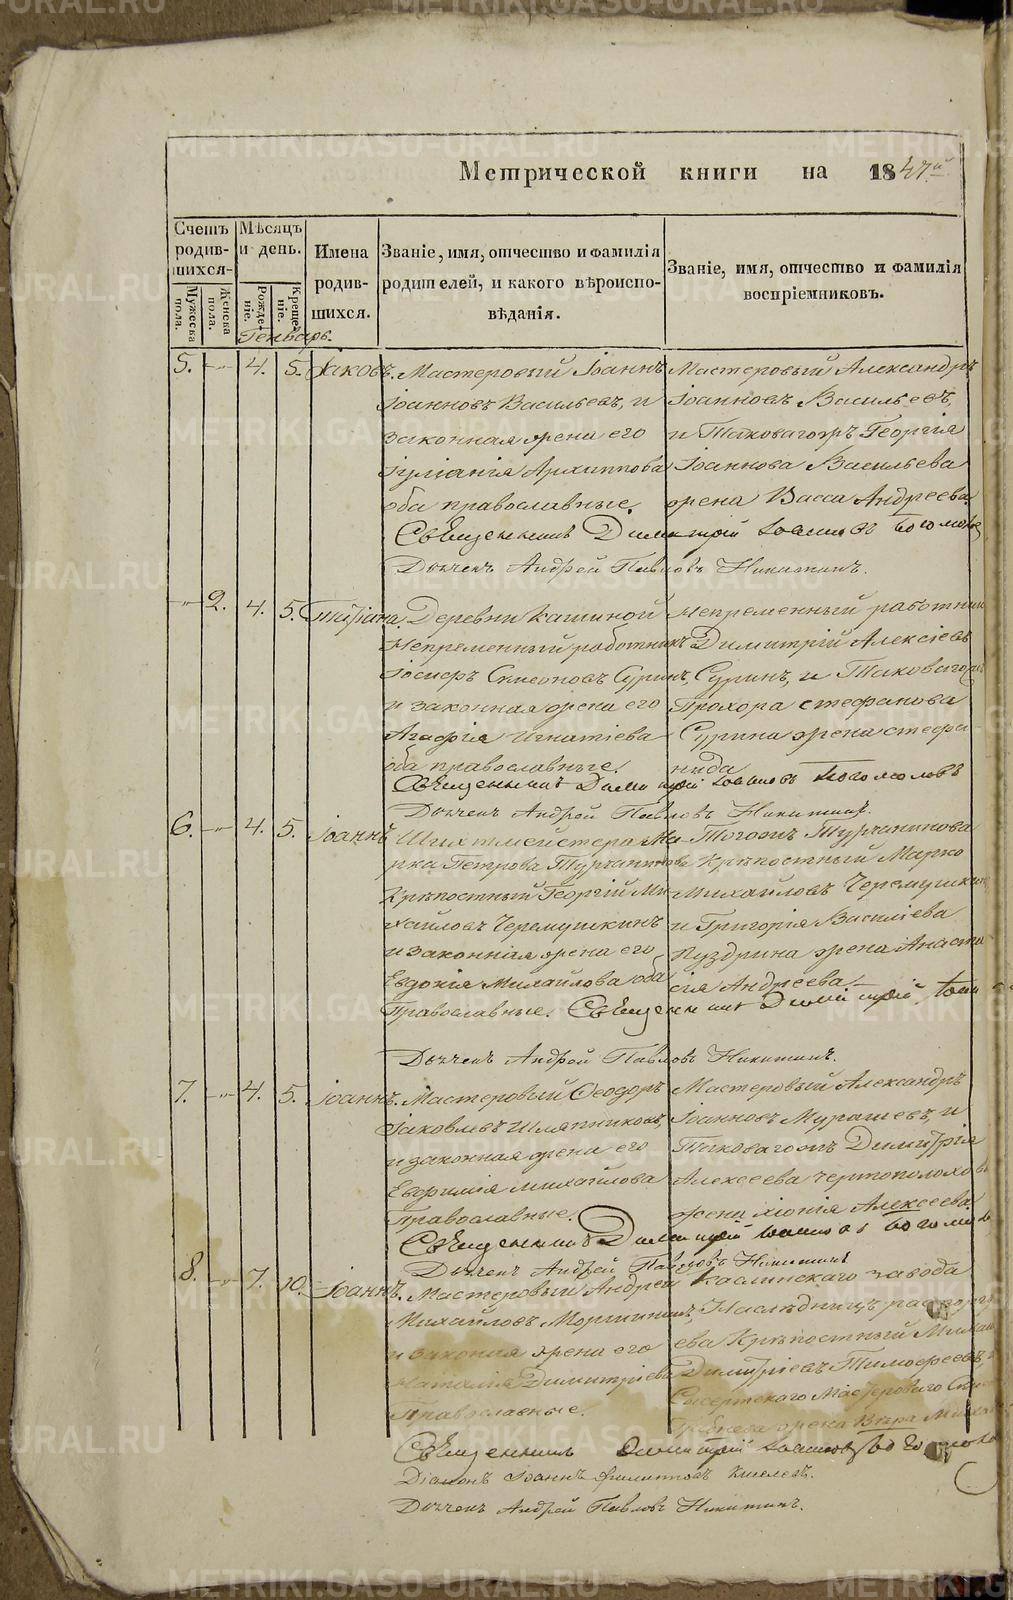 Метрической книги на 1847й
Счетъ родив-шихся-
Мужеска пола.
Женска пола.
Мѣсяцъ и день.
Рожде-ніе.
Креще-ніе.
Имена родив-шихся.
Званіе, имя, отчество и фамилія родителей, и какого вѣроиспо-вѣданія.
Званіе, имя, отчество и фамилія воспріемниковъ.
Генварь.
5. -"- 4. 5. Іаковъ.
Мастеровый Іоаннъ
Іоанновъ Васильевъ, и
законная жена его
Іуліанія Архиппова
оба православные.
Мастеровый Александръ
Іоанновъ Васильевъ,
и Таковагожъ Георгія
Іоаннова Васильева
жена Васса Андреева.
Священникъ Димитрій Іоанновъ
Дьячекъ Андрей Павловъ Никитинъ.
-"- 2. 4. 5. Татіана.
Деревни Кашиной
Непременный работникъ
Іосифъ Симеоновъ Суринъ,
и законная жена его
Агафія Игнатіева
оба православные.
Непременный работник
Димитрій Алексіевъ
Суринъ, и Таковагожъ
Прохора Стефанова
Сурина жена Стефа
нида
Священникъ Димитрій Іоанновъ Богомоловъ
Дьячекъ Андрей Павловъ Никитинъ.
6. -"- 4. 5. Іоаннъ
Шихтмейстера Ма
рка Петрова Турчанинова
Крѣпостный Георгій Ми
хайловъ Черемушкинъ
и законная жена его
Евдокія Михайлова оба
Православные.
Тогожъ Турчанинова
Крѣпостный Марко
Михайловъ Черемушкинъ
и Григорія Василіева
Пуздрина жена Анаста
сія Андреева
Священникъ Димитрій
Дьячекъ Андрей Павловъ Никитинъ.
7. -"- 4. 5. Іоаннъ.
Мастеровый Феодоръ
Іаковлевъ Шляпниковъ
и законная жена его
Евфимія Михайлова
Православные.
Мастеровый Александръ
Іоанновъ Мурашевъ, и
Таковагожъ Димитрія
Алексеева Чертополохова
жена Хіонія Алексеева
Священникъ Димитрій Іоанновъ
Дьячекъ Андрей Павловъ Никитинъ
8. -"- 7. 10. Іоаннъ.
Мастеровый Андрей
Михайловъ
и законная жена его
Наталія Димитріева
Православные.
Каслинскаго завода
Наслѣдницъ расторгу
ева Крѣпостный Михаи
Димитріевъ Тимофеевъ,
Сысертскаго Мастероваго
жена Вѣра
Священникъ Димитрій Іоанновъ
Діаконъ Іоаннъ Филипповъ Киселевъ.
Дьячекъ Андрей Павловъ Никитинъ.
METRIKI.GASO-URAL.RU